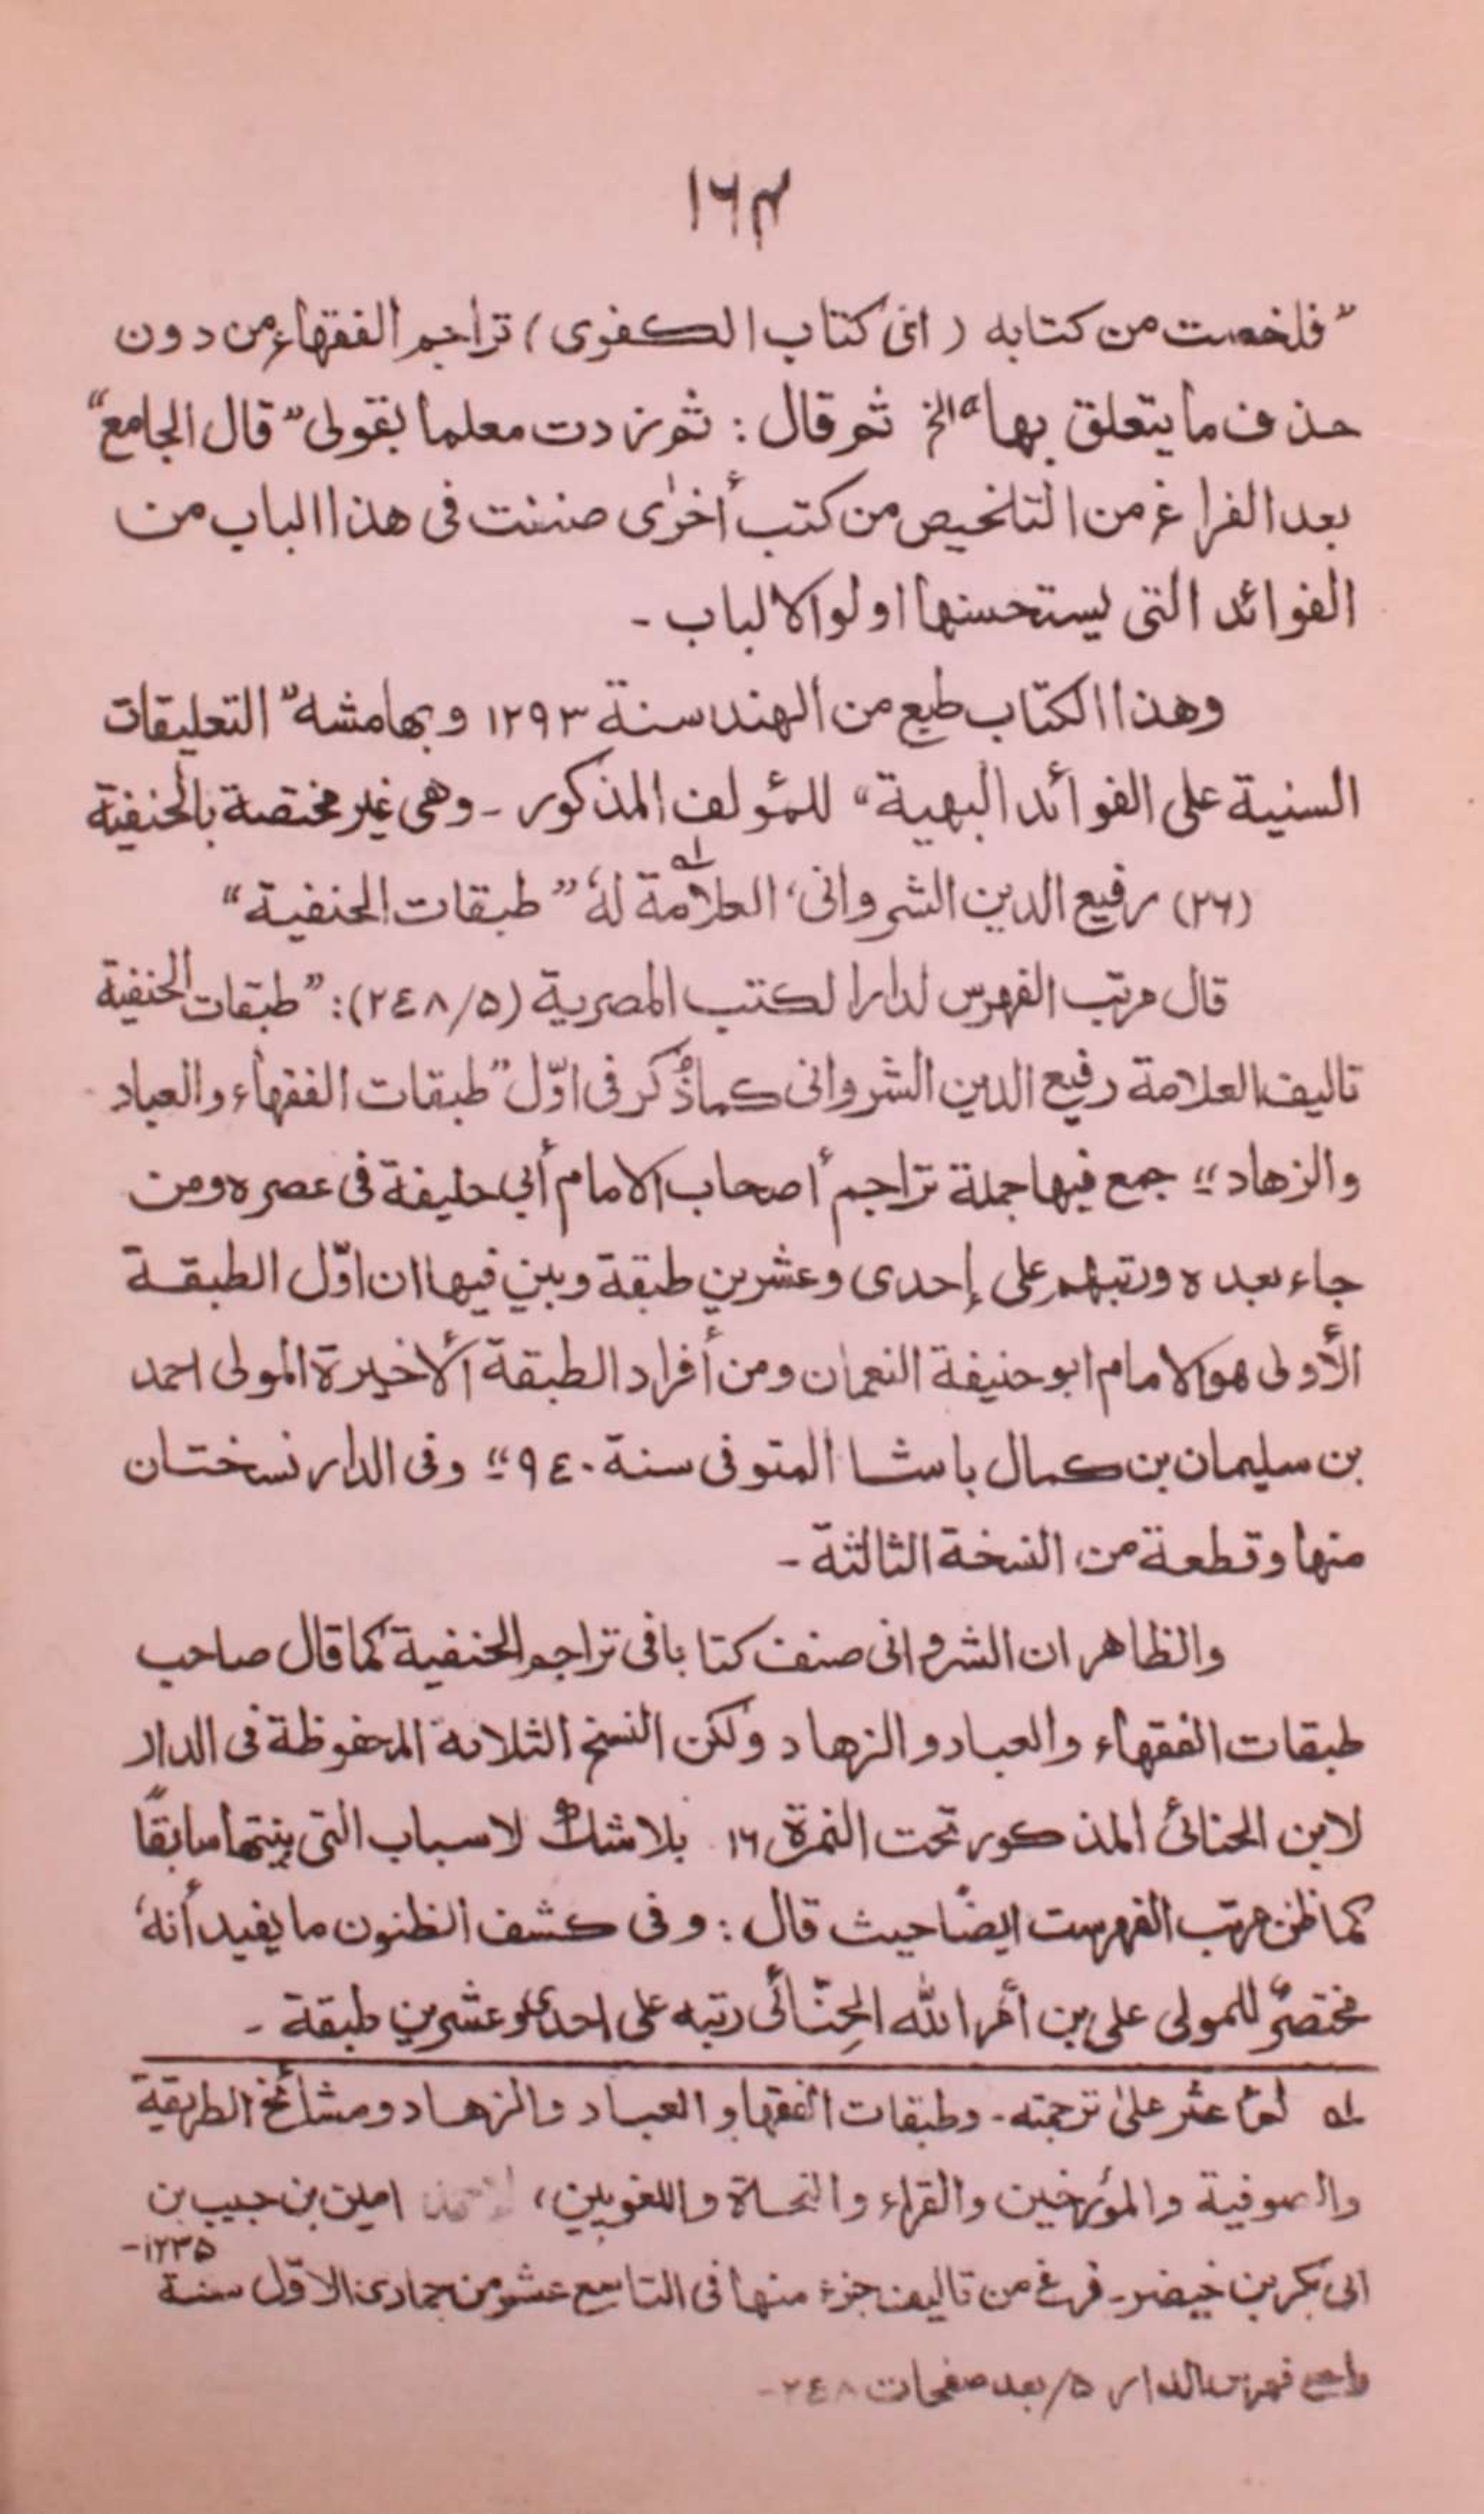 ١٦٤
”فلخصت من كتابه (اى كتاب الكفوى) تراجم الفقهاء من دون
حذف ما يتعلق بها“ الخ ثم قال: ثم زدت معلما بقولى ”قال الجامع“
بعد الفراغ من التلخيص من كتب أخرٰى صنفت فى هذا الباب من
الفوائد التى يستحسنها اولوا الالباب ـ
وهذا الكتاب طبع من الهند سنة ١٢٩٣ وبهامشه ”التعليقات
السنية على الفوائد البهية“ للمؤلف المذكور ـ وهى غير مختصة بالحنفية
(٢٦) رفيع الدين الشروانى، العلامة لهٗ ”طبقات الحنفية“ ؂١
قال مرتب الفهرس لدار الكتب المصرية (٢٤٨/٥): ”طبقات الحنفية
تاليف العلامة رفيع الدين الشروانى كما ذُكر فى اوّل ”طبقات الفقهاء والعباد
والزهاد“ جمع فيها جملة تراجم أصحاب الامام أبي حنيفة فى عصره ومن
جاء بعده ورتبهم على إحدى وعشرين طبقة وبين فيها ان اوّل الطبقة
الأولى هو الامام ابو حنيفة النعمان ومن أفراد الطبقة الأخيرة المولى احمد
بن سليمان بن كمال باشا المتوفى سنة ٩٤٠“ وفى الدار نسختان
منها وقطعة من النسخة الثالثة ـ
والظاهر ان الشروانى صنف كتابا فى تراجم الحنفية كما قال صاحب
طبقات الفقهاء والعباد والزهاد ولكن النسخ الثلاثة المحفوظة فى الدار
لابن الحنائى المذكور تحت النمرة ١٦ بلا شك لاسباب التى بينتها سابقًا
كما ظن مرتب الفهرست ايضًا حيث قال: وفى كشف الظنون ما يفيد أنهٗ
مختصرٌ للمولى على بن أمر الله الحِنّائى رتبه على احدى وعشرين طبقة ـ
؂١ لم أعثر علىٰ ترجمته ـ وطبقات الفقها و العباد والزهاد ومشائخ الطريقة
والصوفية والمؤرخين والقراء والنحاة واللغويين، امين بن حبيب بن
ابى بكر بن خيضر ـ فرغ من تاليف جزء منها فى التاسع عشر من جمادى الاوّل سنة ١٢٣٥ ـ
راجع فهرس الدار ٥/بعد صفحات ٢٤٨ ـ